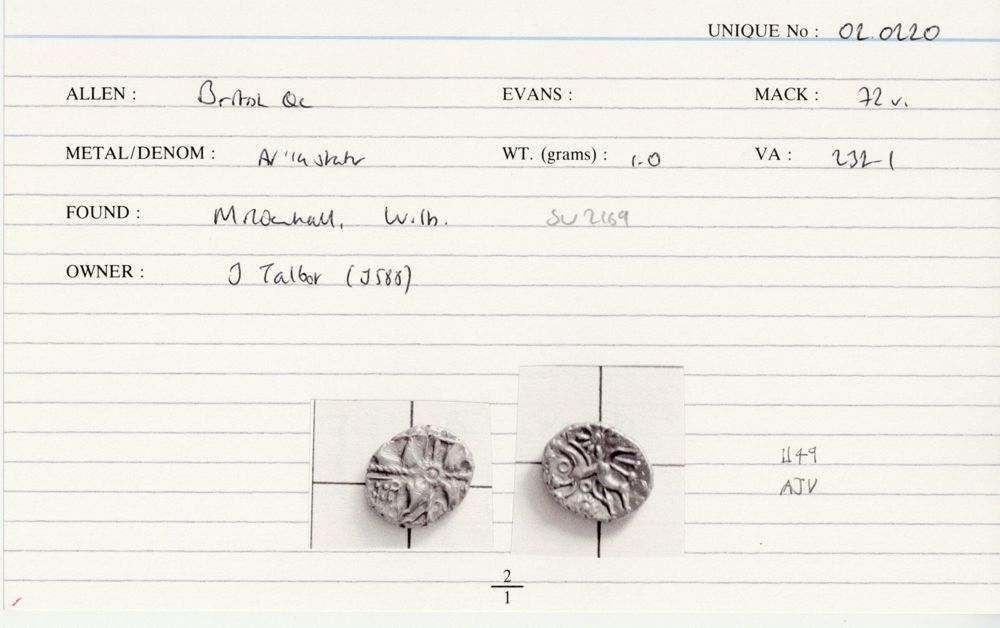 UNIQUE No : 02.0220
ALLEN : British Qc EVANS : MACK : 72 v.
METAL/DENOM : AV 1/4 stater WT. (grams) : 1.0 VA : 232-1
FOUND : Mildenhall, Wilts. SU 2169
OWNER : J Talbot (J588)
1149
AJV
2
1